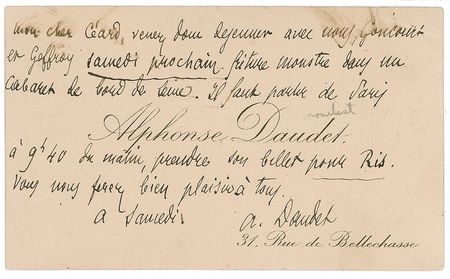 mon cher Céard, venez donc dejeuner avec nous, Goncourt
et Geffroy samedi prochain. friture monstre dans un
cabaret de bord de Seine. Il faut partir de Paris
Alphonse Daudet.
à 9h 40 du matin, prendre son billet pour Ris.
Vous nous ferez bien plaisir à tous.
a Samedi
a. Daudet
31, Rue de Bellechasse